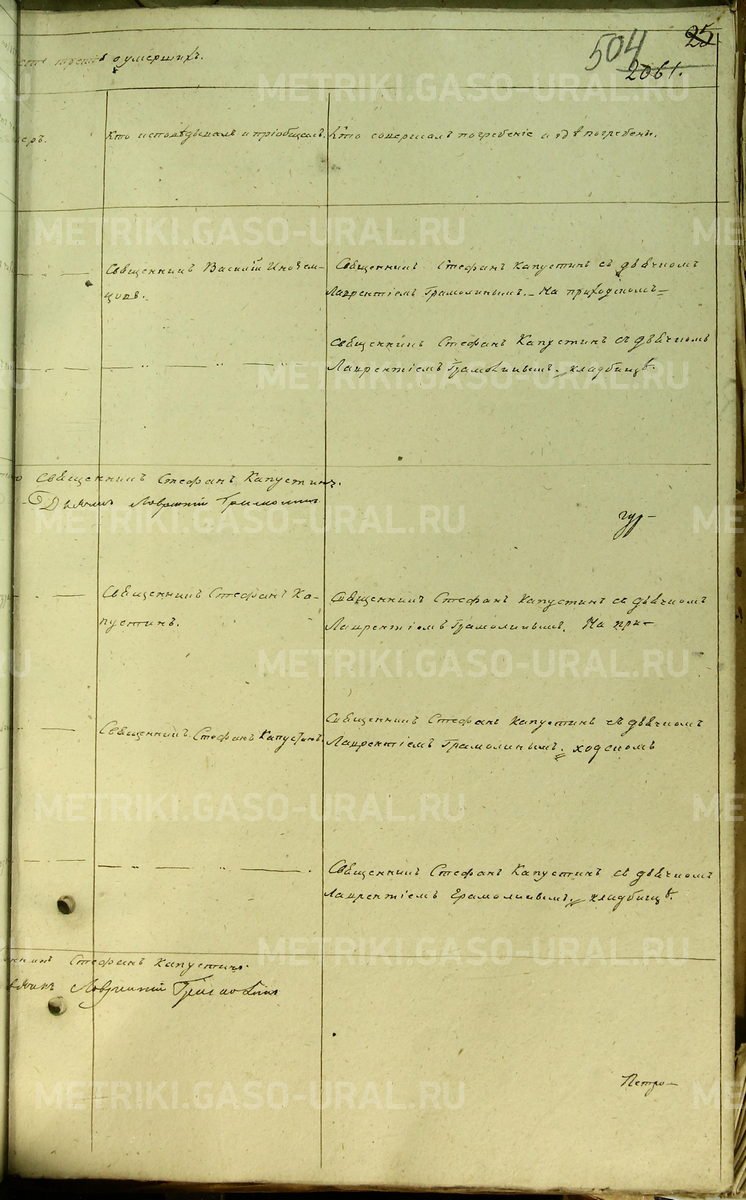 25
504
2061.
о умершихъ.
еръ. Кто исповѣдывалъ и пріобщалъ. Кто совершалъ погребеніе и гдѣ погребены.
Священникъ Василій Инозем-
цовъ.
Священникъ Стефанъ Капустинъ съ дьячкомъ
Лаврентіемъ Грамолинымъ. На приходскомъ
Священникъ Стефанъ Капустинъ съ дьячкомъ
Лаврентіемъ Грамолинымъ. кладбищѣ.
Священникъ Стефанъ Капустинъ.
Дьячекъ Лаврентій Грамолинъ
Священникъ Стефанъ Ка-
пустинъ.
Священникъ Стефанъ Капустинъ съ дьячкомъ
Лаврентіемъ Грамолинымъ. На при-
Священникъ Стефанъ Капустинъ.
Священникъ Стефанъ Капустинъ съ дьячкомъ
Лаврентіемъ Грамолинымъ. ходскомъ
Священникъ Стефанъ Капустинъ съ дьячкомъ
Лаврентіемъ Грамолинымъ. кладбищѣ.
Стефанъ Капустинъ.
Лаврентій Грамолинъ
Петро-
METRIKI.GASO-URAL.RU